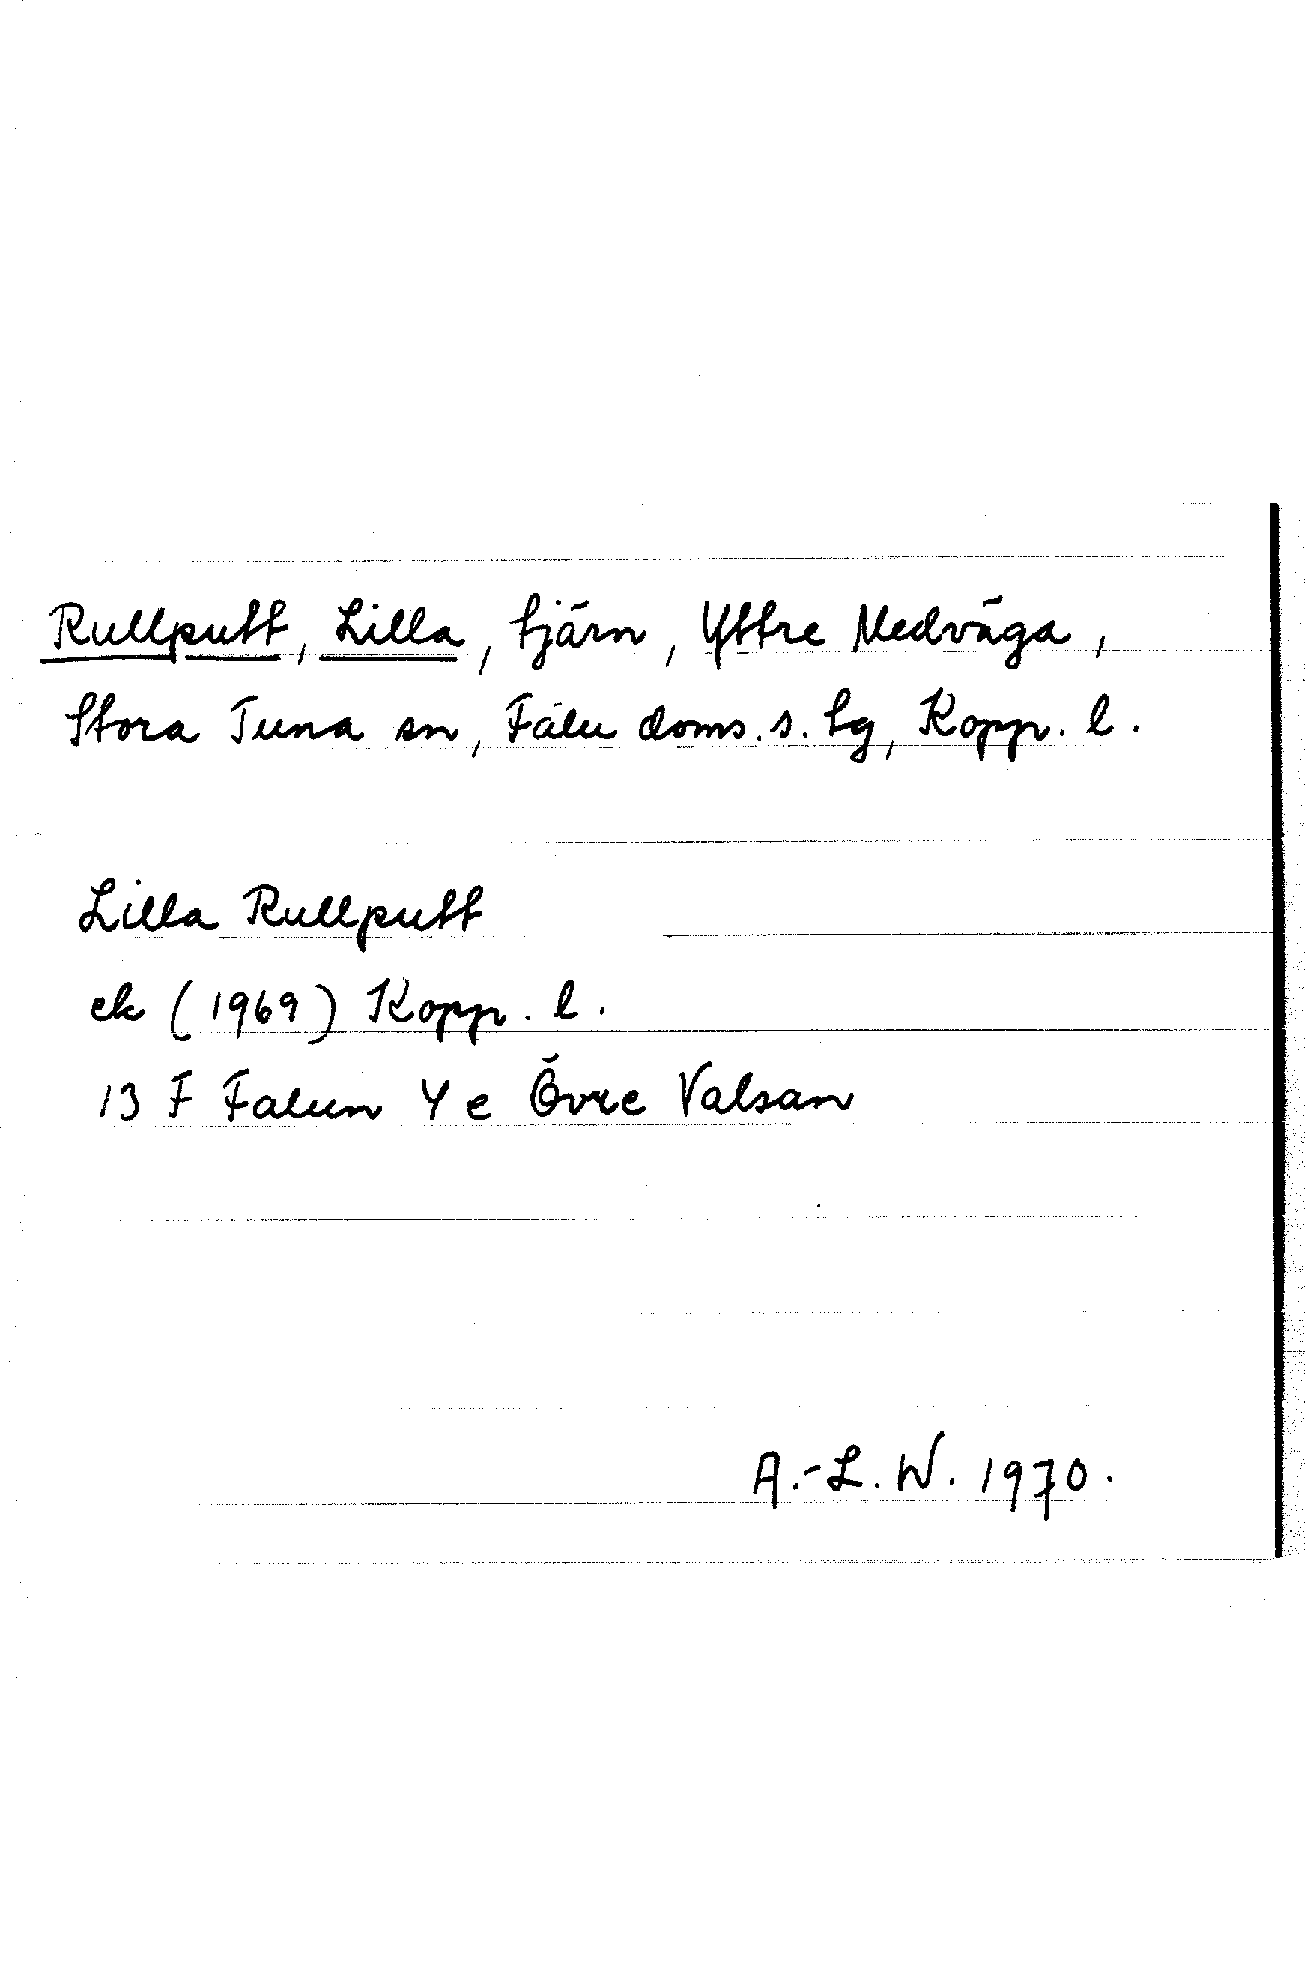 Rullputt, Lilla, tjärn, Yttre Medväga,
Stora Tuna sn, Falu doms. s. tg, Kopp. l.
Lilla Rullputt
ek (1969) Kopp. l.
13 F Falun 4 e Övre Valsan
A.-L. W. 1970.